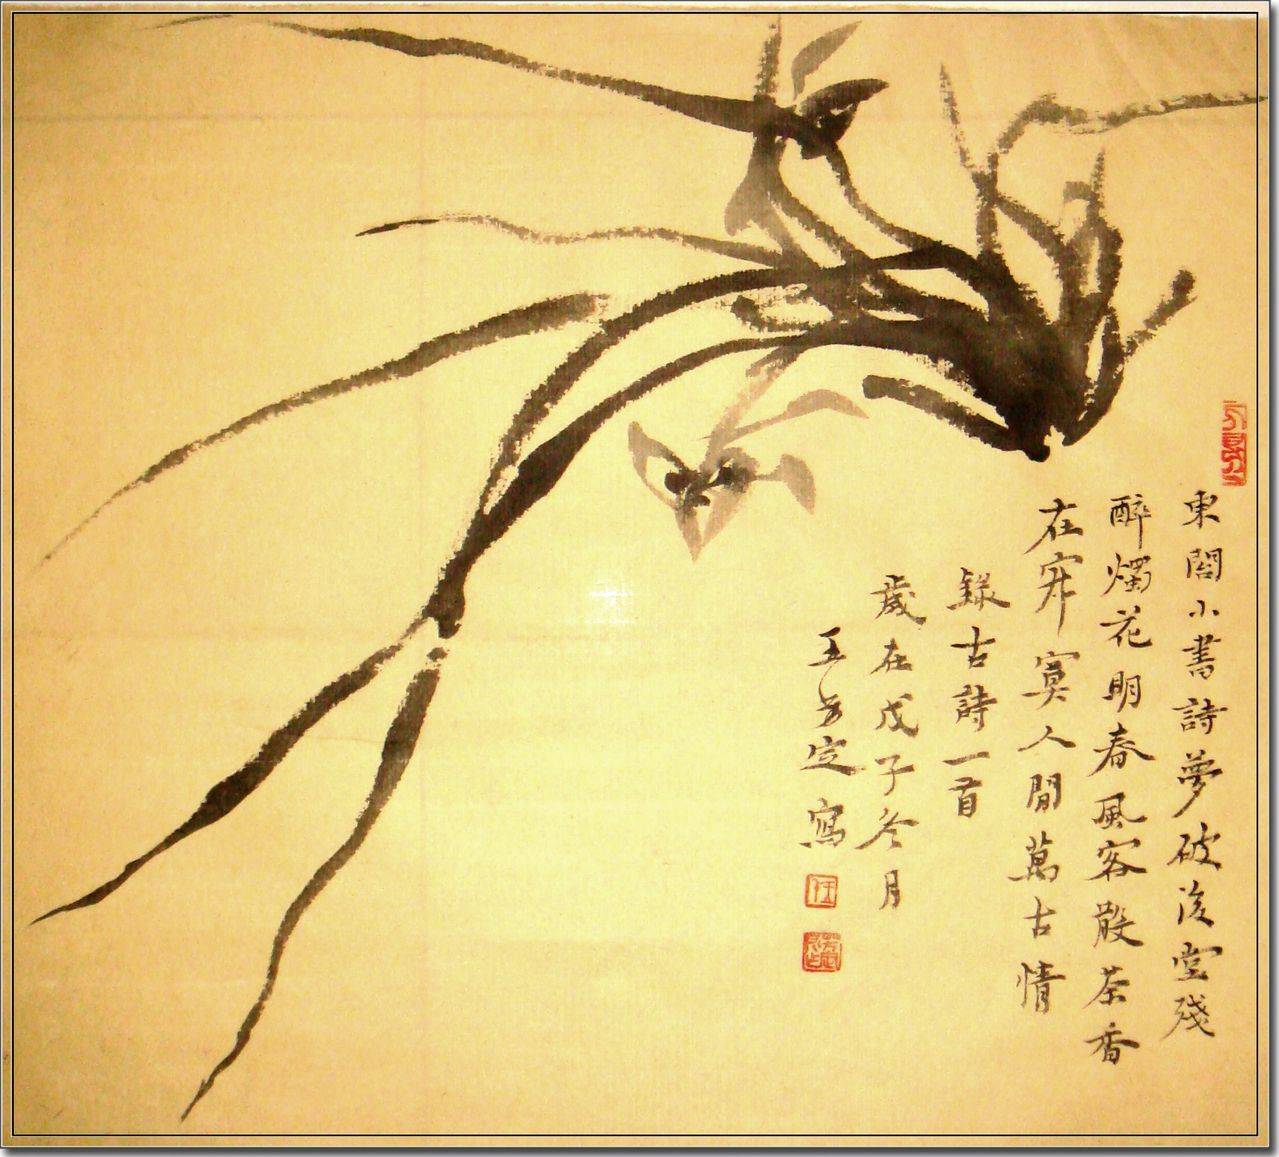 東閣小書詩夢破後堂殘
醉燭花明春風客散茶香
在寂寞人間萬古情
錄古詩一首
歲在戊子冬月
定寫